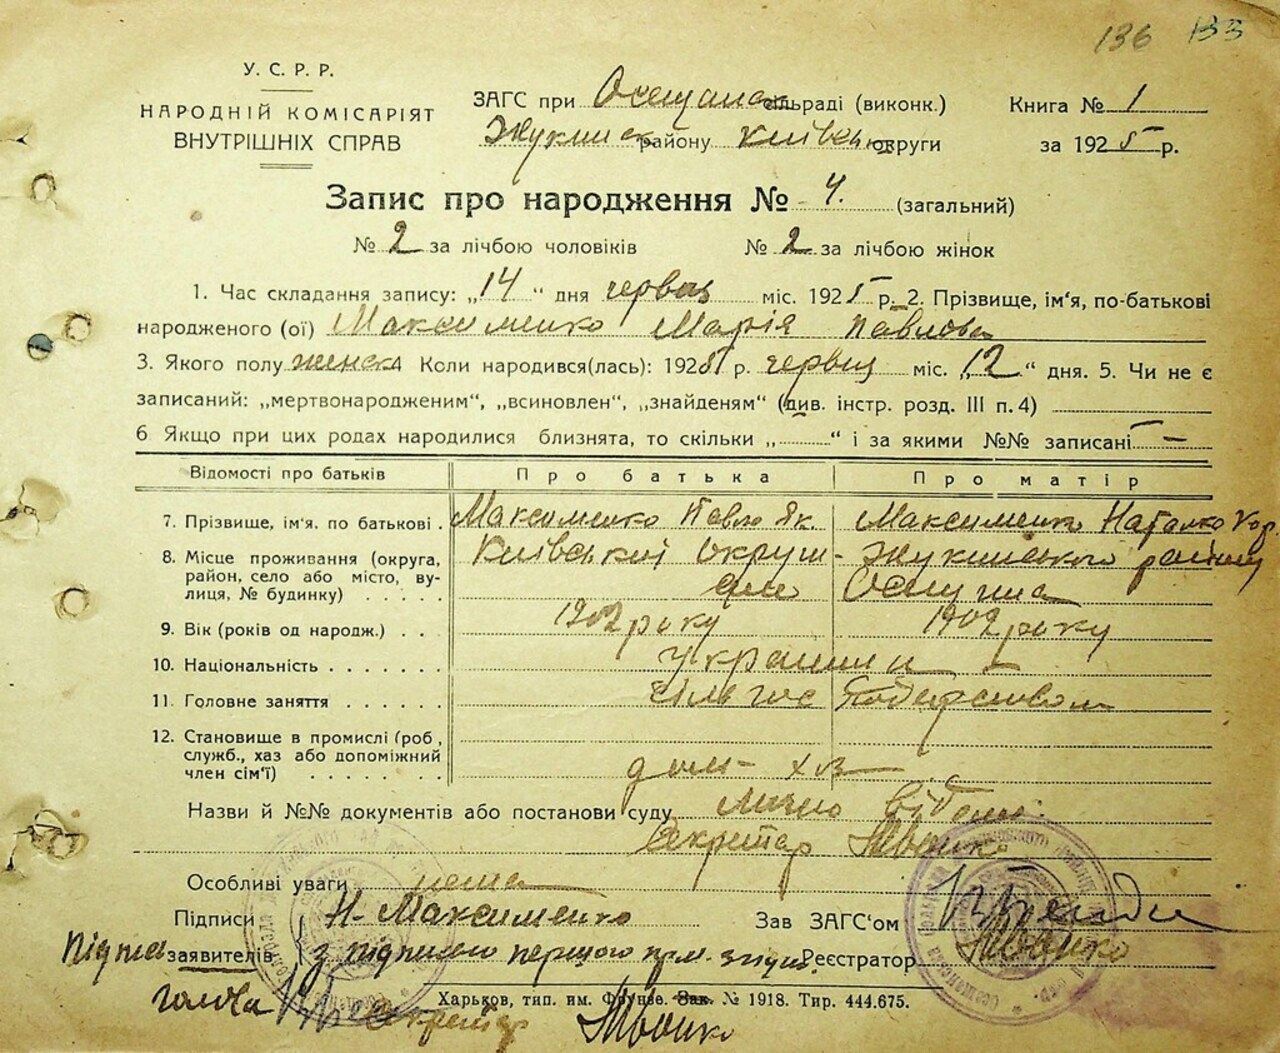 136 133
У. С. Р. Р.
НАРОДНІЙ КОМІСАРІЯТ
ВНУТРІШНІХ СПРАВ
ЗАГС при Осещина сільраді (виконк.)
Жукинск району Київськ округи
Книга № 1
за 1925 р.
Запис про народження № 4. (загальний)
№ 2 за лічбою чоловіків № 2 за лічбою жінок
1. Час складання запису: „14“ дня червця міс. 1925 р. 2. Прізвище, ім'я, по-батькові
народженого (ої) Максименко Марія Павловна
3. Якого полу женска Коли народився(лась): 1925 р. червця міс. „12“ дня. 5. Чи не є
записаний: „мертвонародженим“, „всиновлен“, „знайденям“ (див. інстр. розд. III п. 4)
6 Якщо при цих родах народилися близнята, то скільки „ “ і за якими №№ записані —
Відомості про батьків Про батька Про матір
7. Прізвище, ім'я. по батькові . Максименко Павло Як. Максименко Наталко
8. Місце проживання (округа, район, село або місто, вулиця, № будинку) Київської округи Жукинського району
село Осещина
9. Вік (років од народж.) . . . 1902 року 1902 року
10. Національність . . . . . . . українци
11. Головне заняття . . . . . . сільгос
12. Становище в промислі (роб, служб., хаз або допоміжний член сім'ї) . . . . . . . дом- хоз
Назви й №№ документів або постанови суду
Секретар Швойко
Особливі уваги нема
Підписи Н. Максименко Зав ЗАГС'ом
Підписи заявителів з підписью першого прм. згідно. Реєстратор Швойко
Харьков, тип. им. Фрунзе. Зак. № 1918. Тир. 444.675.
голова Секретар Швойко